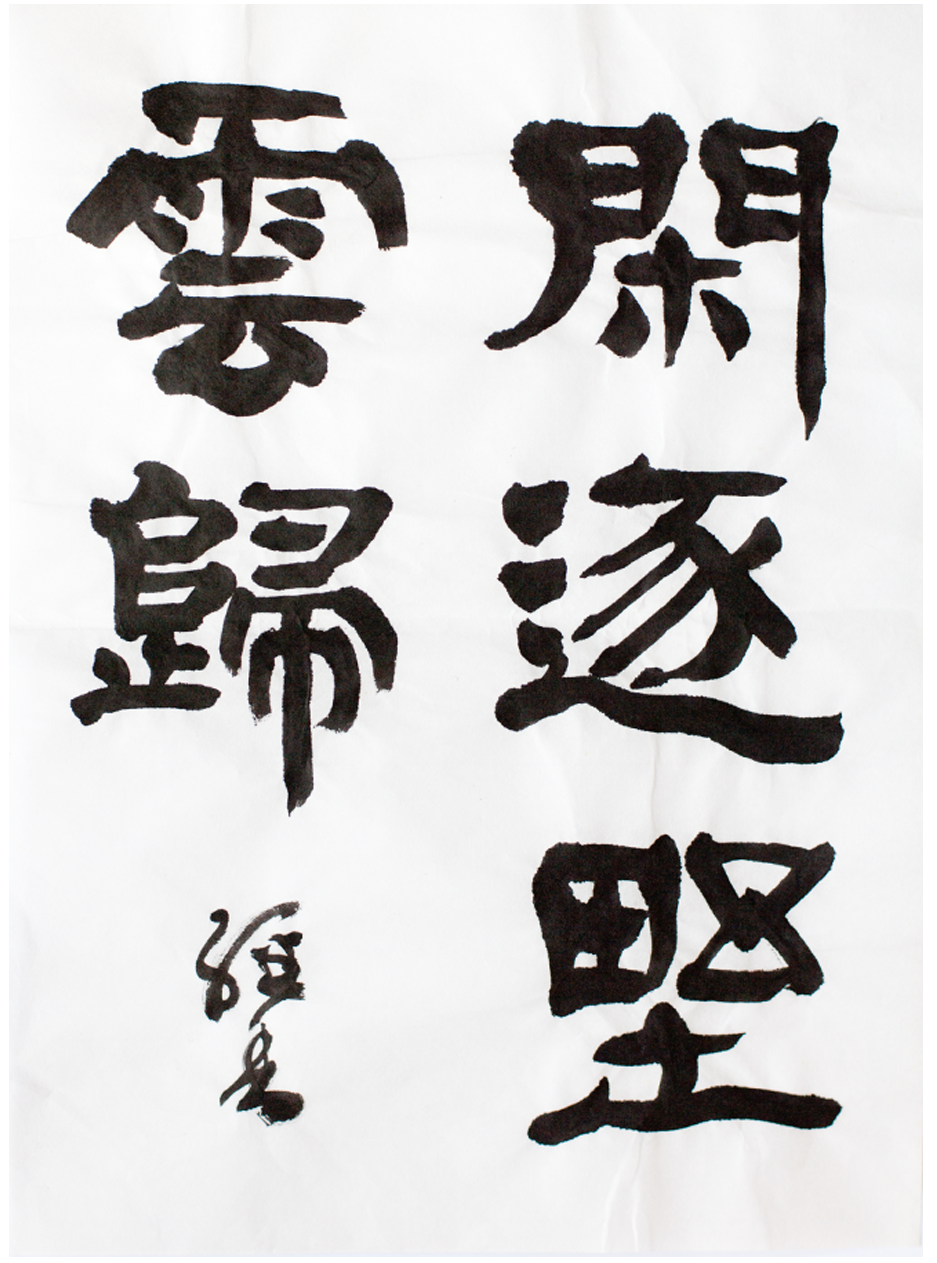 閑逐野
雲歸